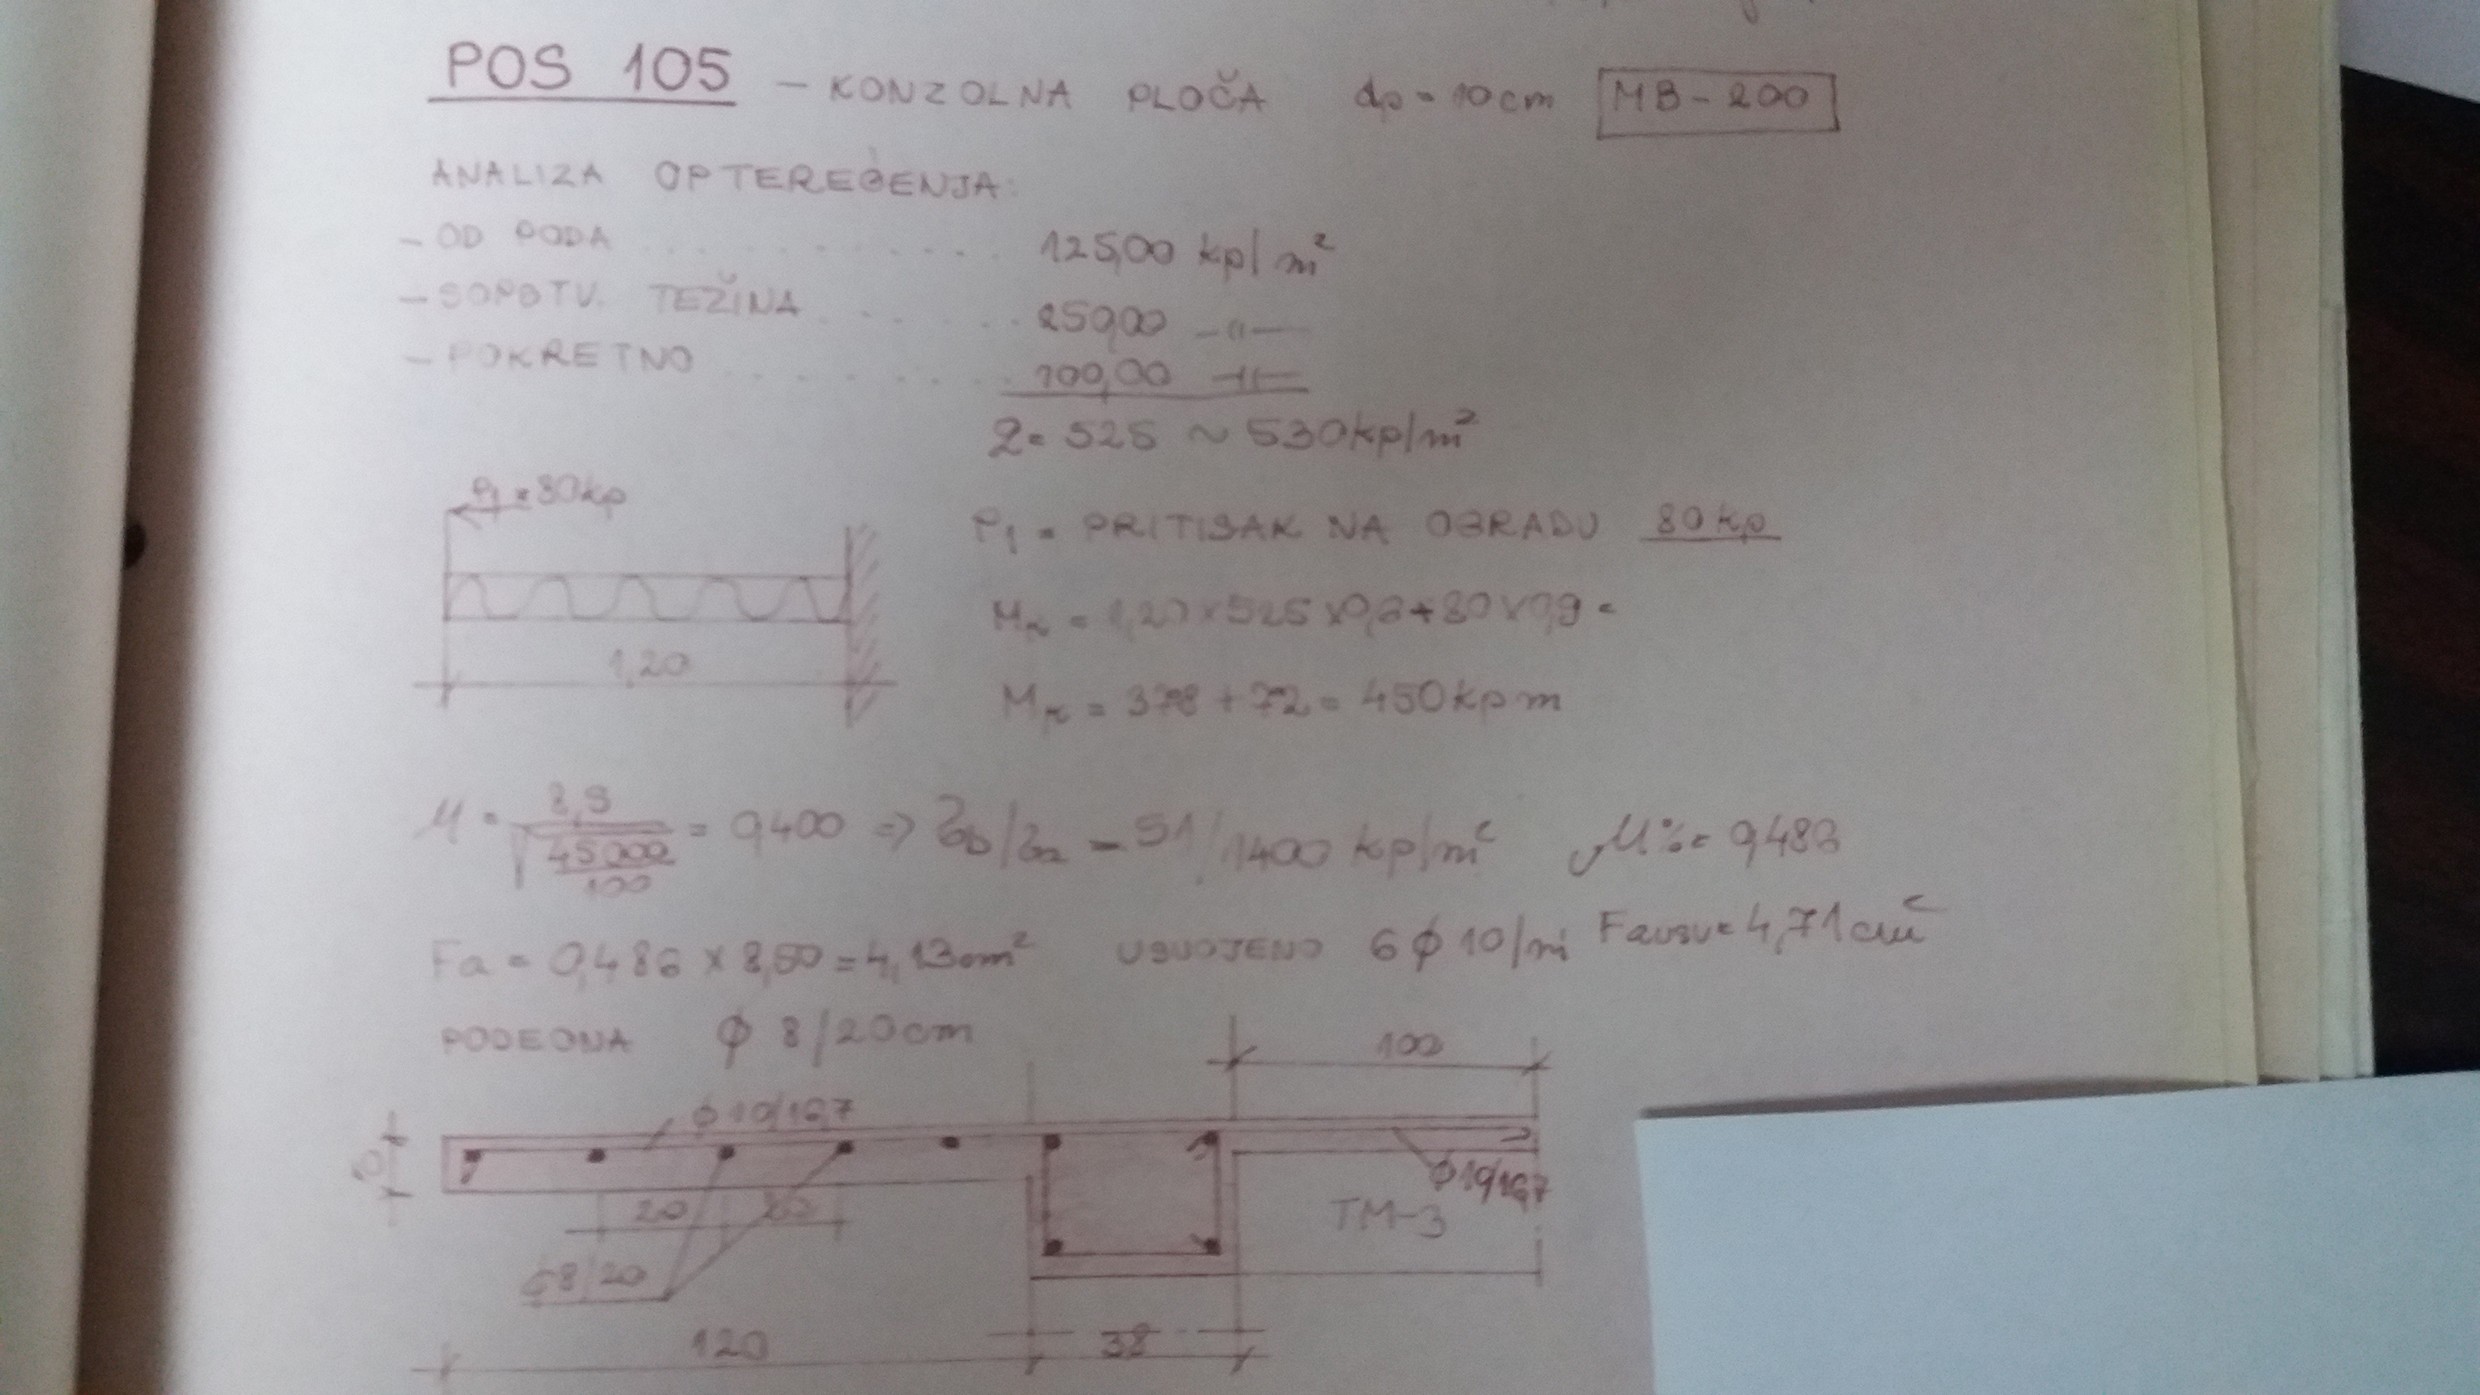 POS 105 - KONZOLNA PLOČA dp = 10cm MB-200
ANALIZA OPTEREĆENJA:
- OD PODA .......... 125,00 kp/m²
- SOPSTV. TEŽINA ...... 250,00 -"-
- POKRETNO ........ 100,00 -"-
525 ~ 530kp/m²
P1 = 80kp
P1 = PRITISAK NA OGRADU 80kp
1,20 × 525 × 0,6 + 80 × 0,9 =
1,20
= 378 + 72 = 450kpm
45000
100
= 0,400 => 51/1400 kp/m²
Fa = 0,486 × 8,50 = 4,13cm² USVOJENO 6φ10/m Fa usv = 4,71cm²
PODEONA φ 8/20cm
100
φ10/16,7
φ10/16,7
20 20
TM-3
φ8/20
120 38